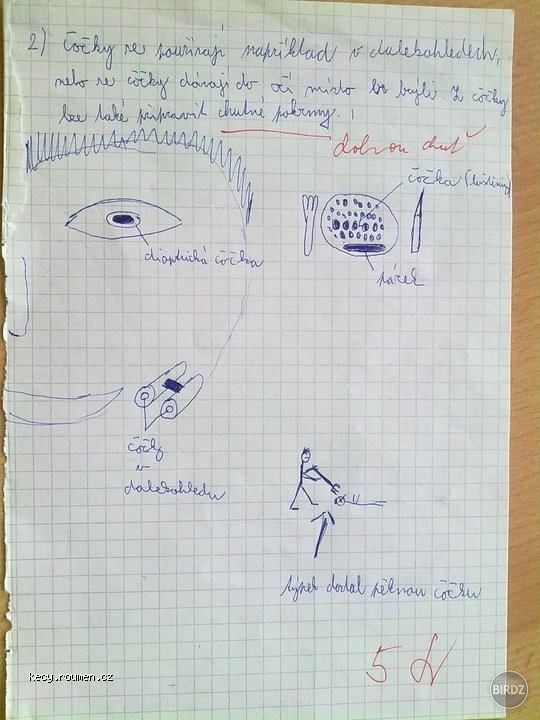 2) Čočky se používají například v dalekohledech,
nebo se čočky dávají do očí místo brýlí. Z čočky
lze také připravit chutné pokrmy.
dobrou chuť
čočka (luštěnina)
dioptrická čočka
párek
čočky
v
dalekohledu
týpek dostal pěknou čočku
5
kecy.roumen.cz
BIRDZ